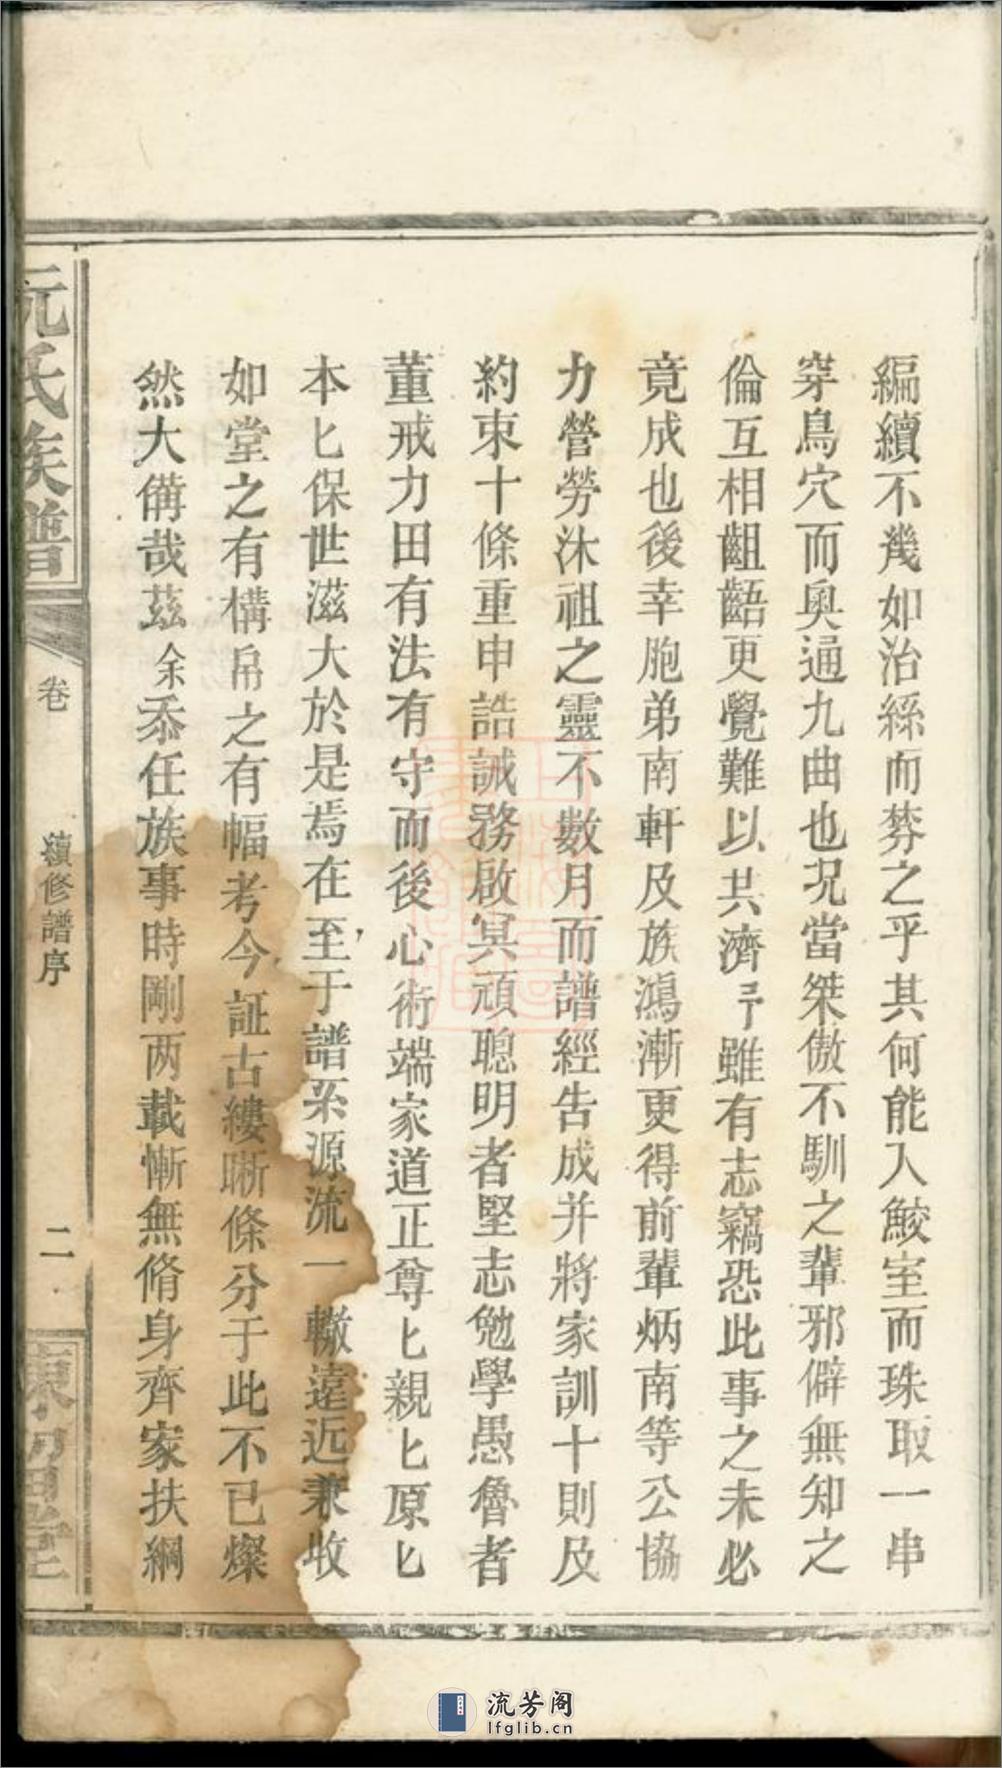 編續不幾如治絲而棼之乎其何能入鮫室而珠取一串
穿鳥穴而奥通九曲也况當桀傲不馴之輩邪僻無知之
倫互相齟齬更覺難以共濟予雖有志竊恐此事之未必
竟成也後幸胞弟南軒及族鴻漸更得前輩炳南等公協
力營勞沐祖之靈不數月而譜經告成并將家訓十則及
約束十條重申誥誡務啟冥頑聰明者堅志勉學愚魯者
董戒力田有法有守而後心術端家道正尊匕親匕原匕
本匕保世滋大於是焉在至于譜系源流一轍遠近兼收
如堂之有構帛之有幅考今証古縷晰條分于此不已燦
然大備哉茲余忝任族事時剛两載慚無脩身齊家扶綱
阮氏族譜
卷
續修譜序
二
流芳阁
lfglib.cn